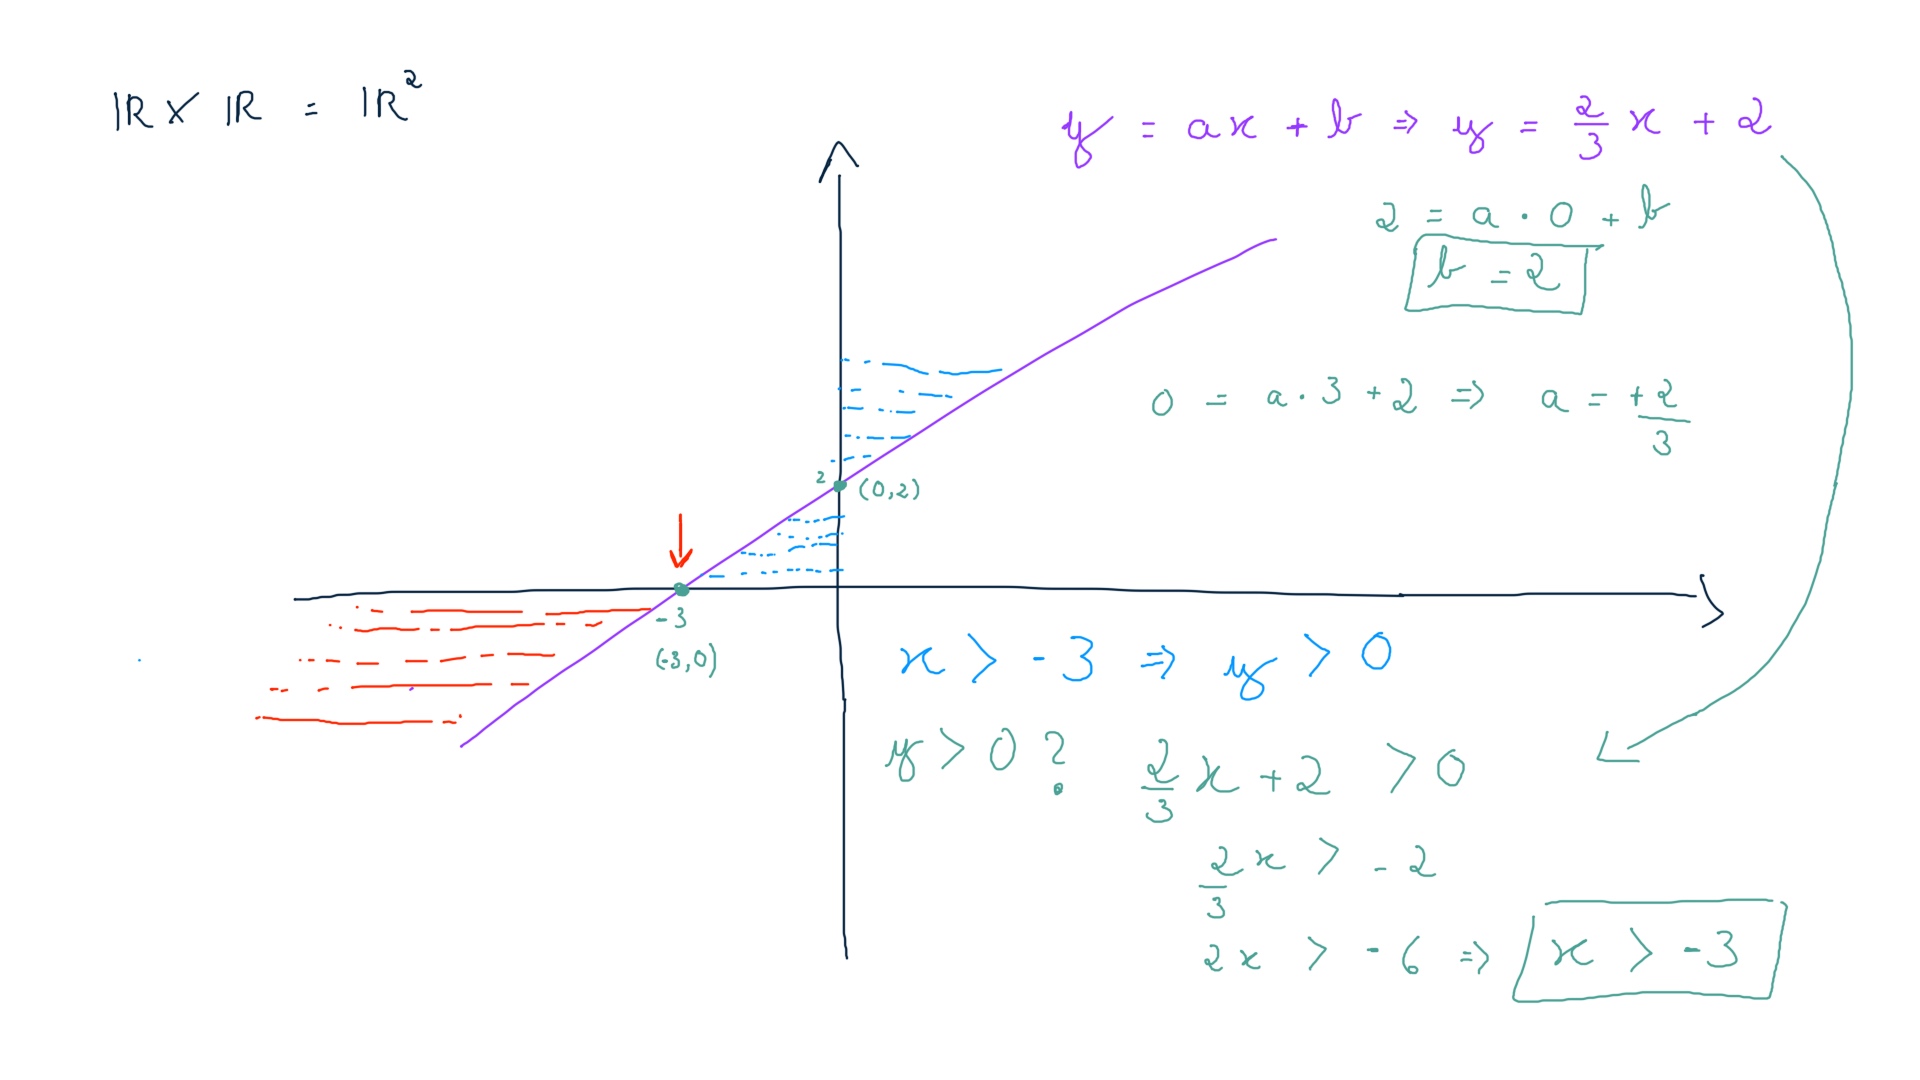 ℝ × ℝ = ℝ²
y = ax + b ⇒ y = 2/3 x + 2
2 = a · 0 + b
b = 2
0 = a · 3 + 2 ⇒ a = +2/3
2
(0,2)
-3
(-3,0)
x > -3 ⇒ y > 0
y > 0 ?
2/3 x + 2 > 0
2/3 x > -2
2x > -6 ⇒ x > -3